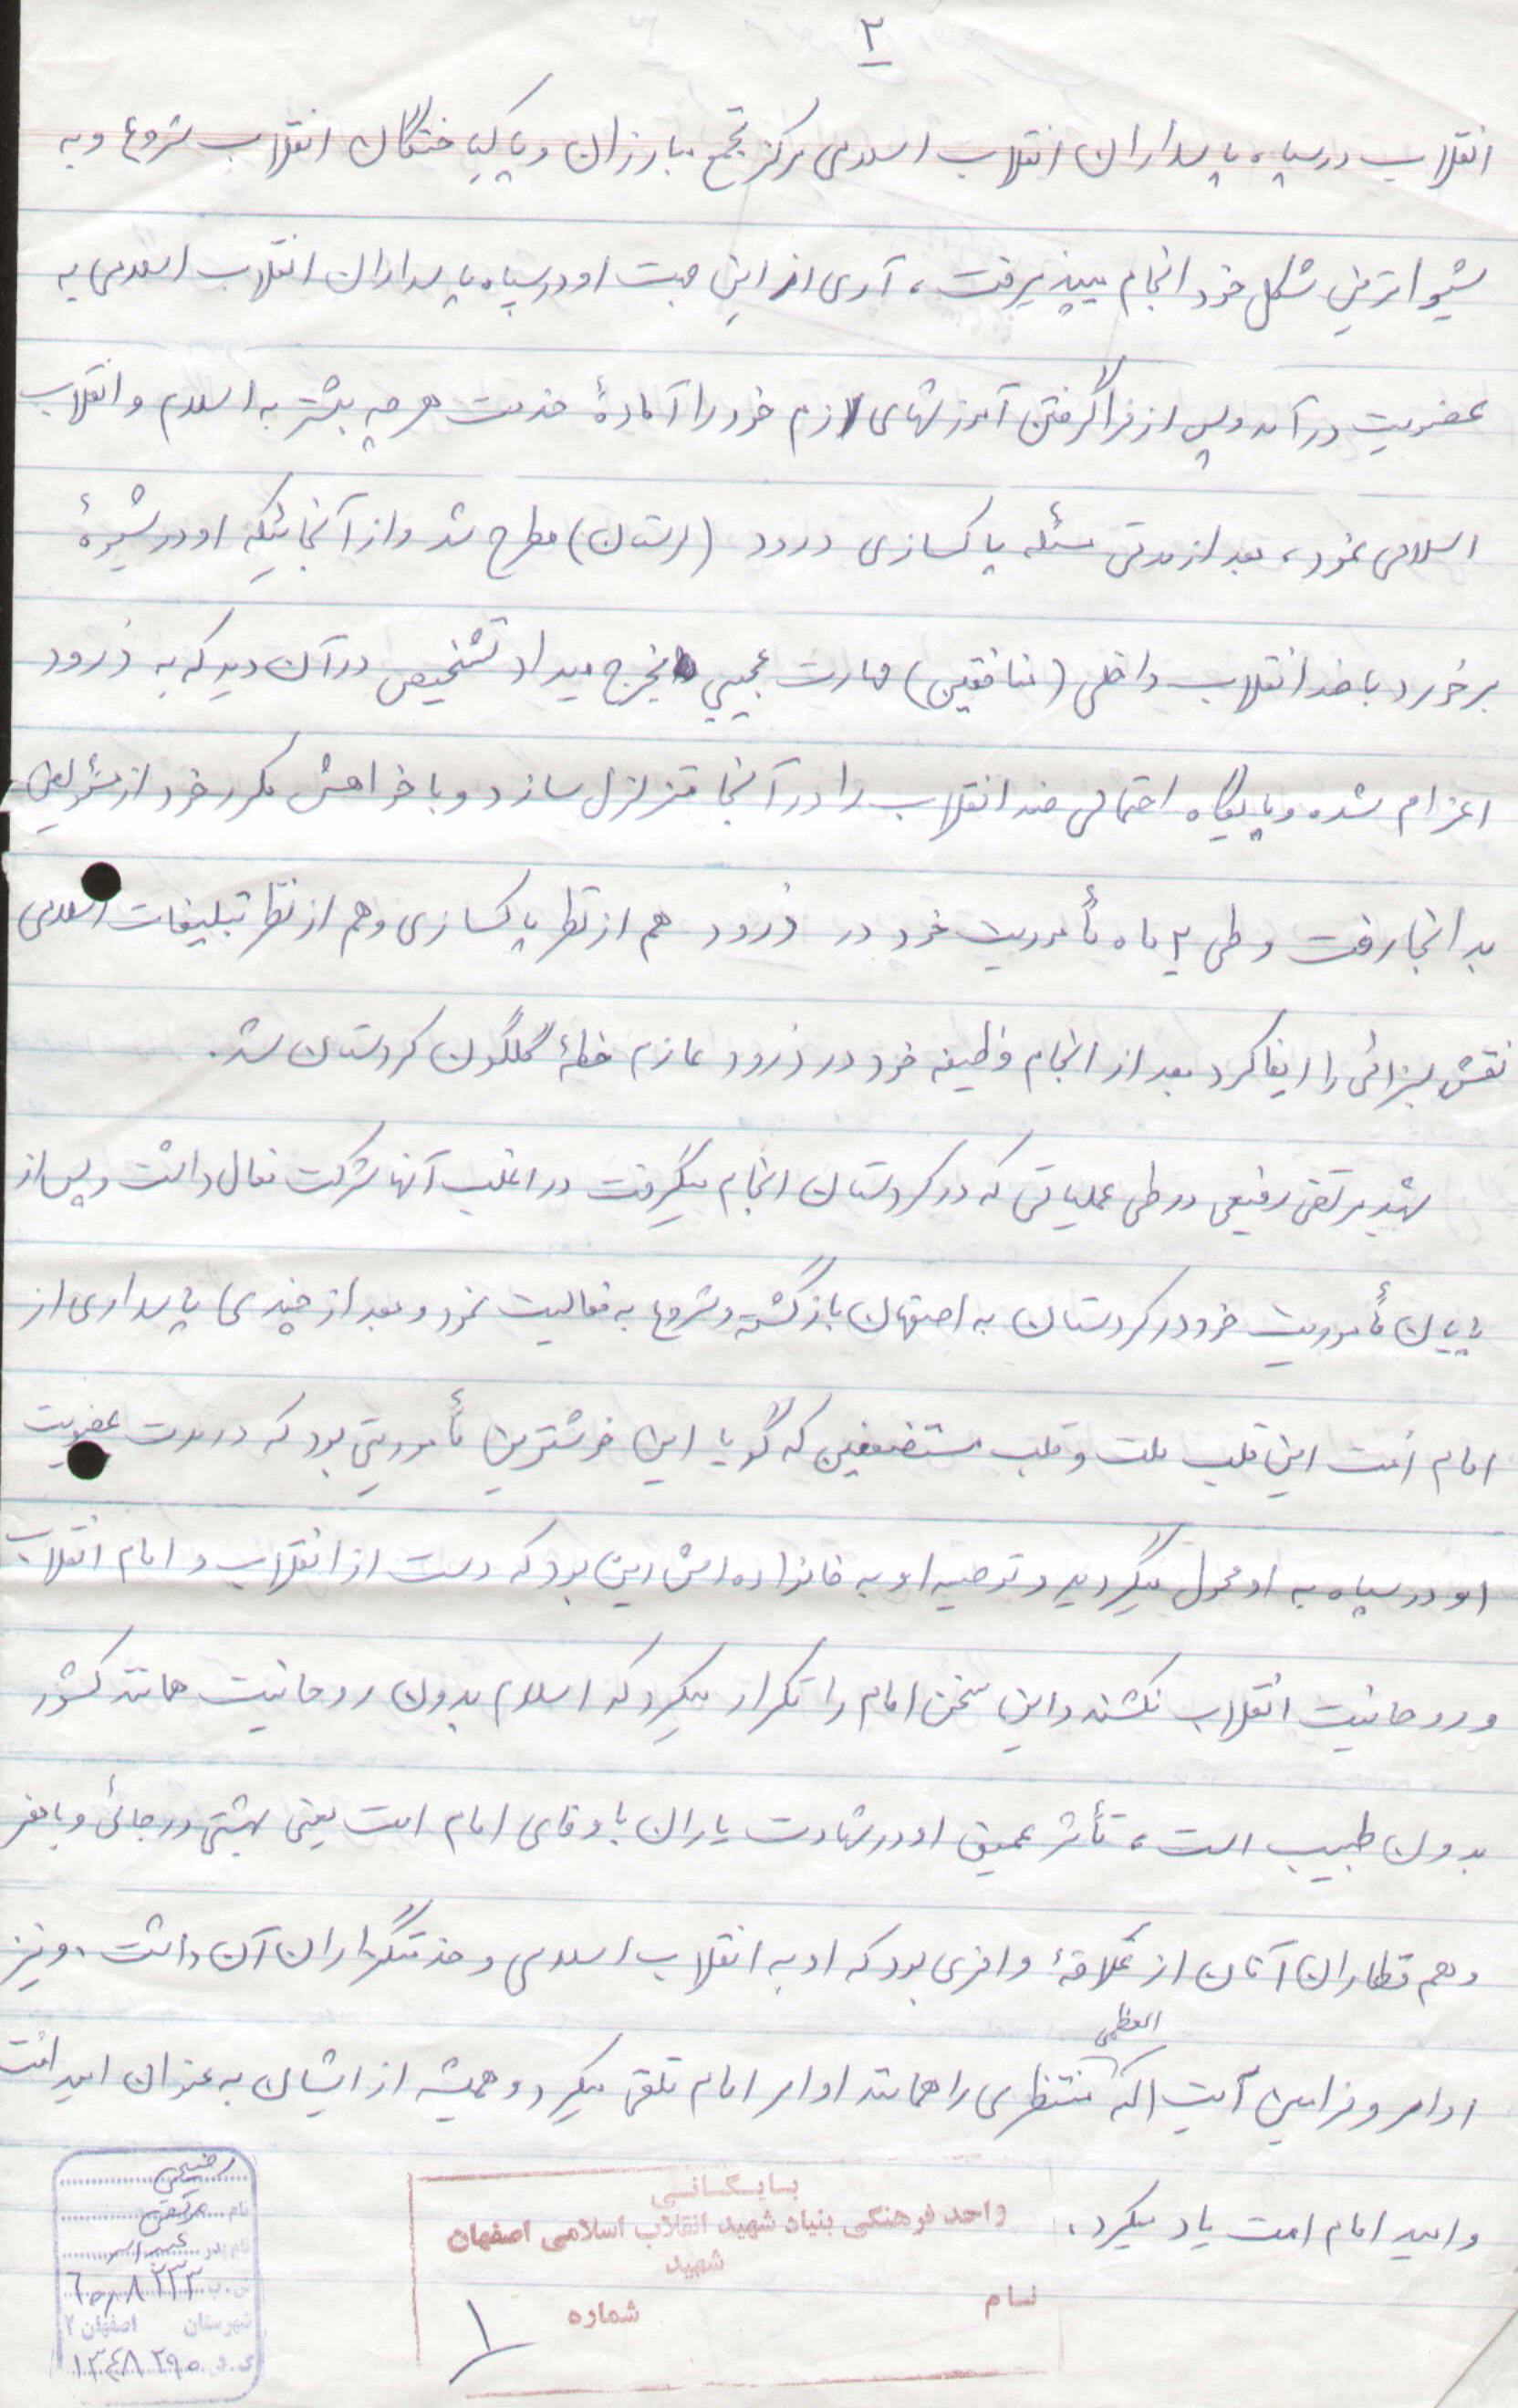 ۲
انقلاب در سپاه پاسداران انقلاب اسلامی مرکز تجمع مبارزان و پاکباختگان انقلاب شروع و به
شیواترین شکل خود انجام میپذیرفت، آری از این جهت او در سپاه پاسداران انقلاب اسلامی به
عضویت درآمد و پس از فراگرفتن آموزشهای لازم خود را آمادهٔ خدمت هر چه بیشتر به اسلام و انقلاب
اسلامی نمود، بعد از مدتی مسئله پاکسازی درود (لرستان) مطرح شد و از آنجائیکه او در شیوهٔ
برخورد با ضد انقلاب داخلی (منافقین) مهارت عجیبی بخرج میداد تشخیص در آن دید که به دُرود
اعزام شده و پایگاه احتمالی ضد انقلاب را در آنجا متزلزل سازد و با خواهش مکرر خود از مسئولین
بدانجا رفت و طی ۲ ماه مأموریت خود در دُرود هم از نظر پاکسازی و هم از نظر تبلیغات اسلامی
نقش بسزائی را ایفا کرد بعد از انجام وظیفه خود در دُرود عازم خطهٔ گلگون کردستان شد.
شهید مرتضی رفیعی در طی عملیاتی که در کردستان انجام میگرفت در اغلب آنها شرکت فعال داشت و پس از
پایان مأموریت خود در کردستان به اصفهان بازگشته و شروع به فعالیت نمود و بعد از چندی پاسداری از
امام اُمت این قلب ملت و قلب مستضعفین که گویا این خوشترین مأموریتی بود که در مدت عضویت
او در سپاه به او محول میگردید و توصیه او به خانواده اش این بود که دست از انقلاب و امام انقلاب
و روحانیت انقلاب نکشند و این سخن امام را تکرار میکرد که اسلام بدون روحانیت همانند کشور
بدون طبیب است، تأثر عمیق او در شهادت یاران باوفای امام امت یعنی بهشتی و رجائی و باهنر
و هم قطاران آنان از عَلاقهٔ وافری بود که او به انقلاب اسلامی و خدمتگزاران آن داشت. و نیز
اوامر و فرامین آیت اله العظمی منتظری را همانند اوامر امام تلقی میکرد و همیشه از ایشان به عنوان امید اُمت
و امید امام امت یاد میکرد.
بایگانی
واحد فرهنگی بنیاد شهید انقلاب اسلامی اصفهان
شهید
نام
شماره ۱
رفیعی
نام مرتضی
نام پدر
شهرستان اصفهان ۲